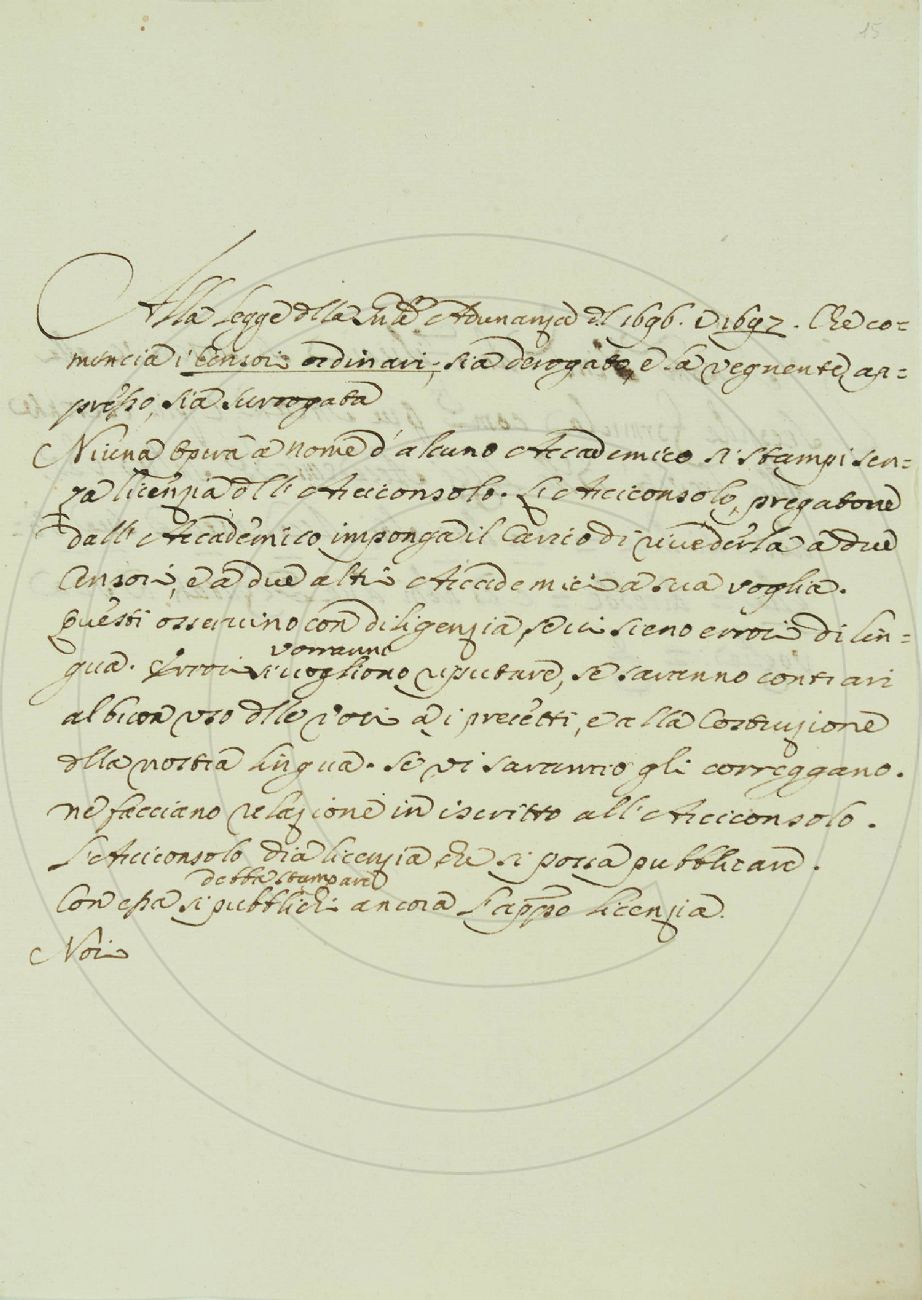 15
Alla Legge della Adunanza del 1696. e 1697. Che co=
mincia i Censori ordinari, sia derogato, e la vegnente ap=
presso, sia surrogata
Niuna opera a nome d'alcuno Accademico si stampi sen=
za licenzia dell'Arciconsolo. L'Arciconsolo, pregatone
dall'Accademico imponga il Carico di rivederla a due
Censori, e a due altri Accademici a sua voglia.
Questi osservino con diligenzia, se vi sieno errori di lin=
gua. Errori si vogliono reputare, se saranno contrari
vorranno
al buon uso delle voci a i precetti, e alla Costruzione
della nostra lingua. Se vi saranno gli correggano.
ne facciano relazione in iscritto all'Arciconsolo.
L'Arciconsolo dia licenzia che si possa pubblicare.
debba stampare
Con essa si pubblichi ancora l'appso licenzia.
Noi